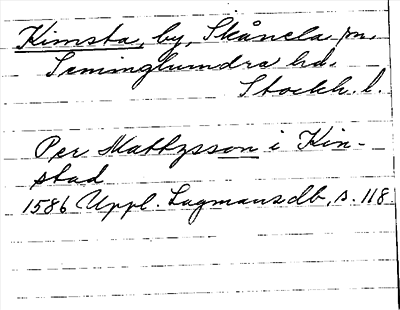 Kimsta, by, Skånela sn,
Seminghundra hd.
Stockh. l.
Per Mattzsson i Kin-
stad
1586 Uppl. Lagmansdb, s. 118.